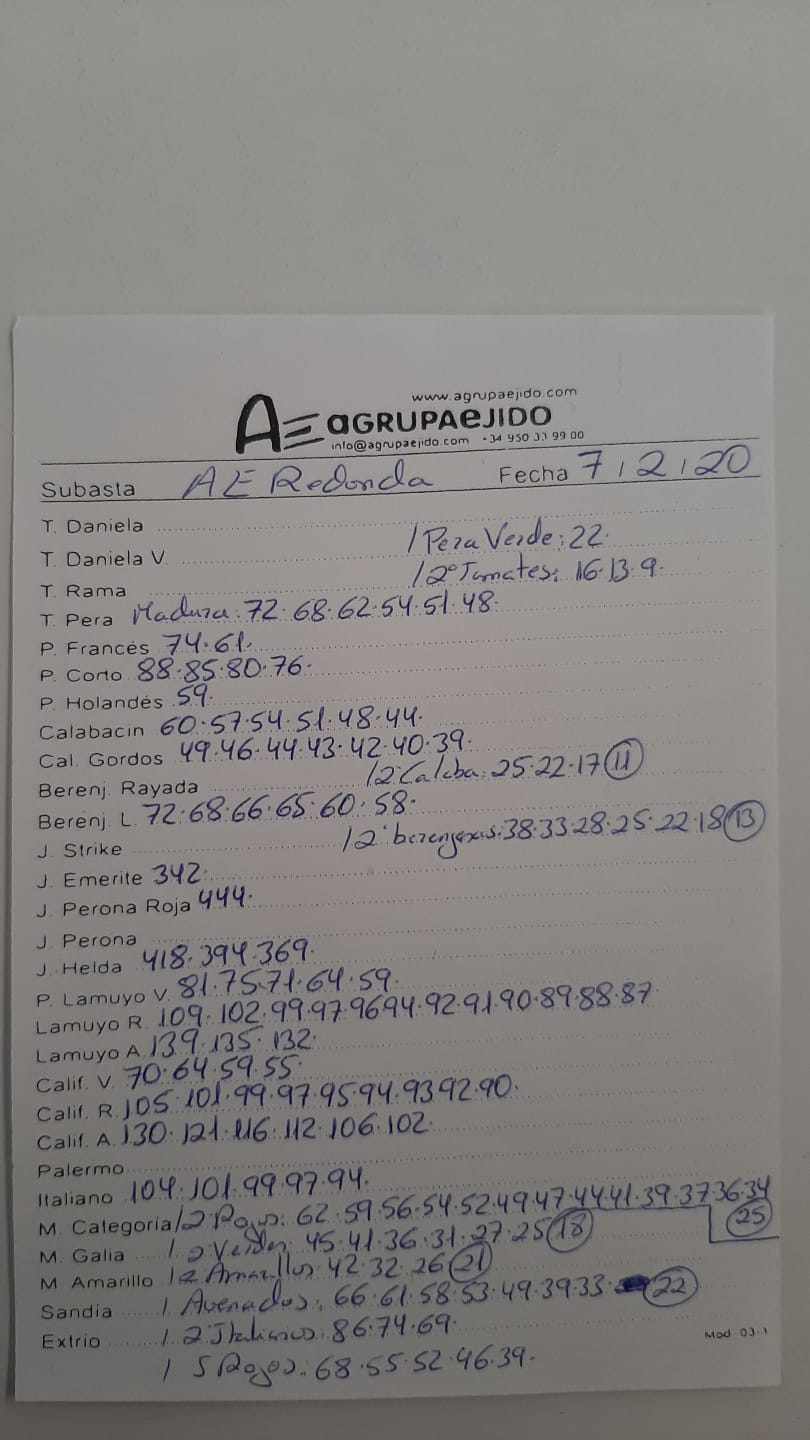 www.agrupaejido.com
AE AGRUPAEJIDO
info@agrupaejido.com +34 950 33 99 00
Subasta AE Redonda Fecha 7/2/20
T. Daniela
/ Pera Verde: 22.
T. Daniela V.
/ 2º Tomates: 16.13.9.
T. Rama
T. Pera Madura: 72.68.62.54.51.48.
P. Francés 74.61.
P. Corto 88.85.80.76.
P. Holandés 59.
Calabacin 60.57.54.51.48.44.
Cal. Gordos 49.46.44.43.42.40.39.
Berenj. Rayada / 2º Calaba: 25.22.17 (11)
Berenj. L. 72.68.66.65.60.58.
J. Strike / 2º berenjenas: 38.33.28.25.22.18 (13)
J. Emerite 342.
J. Perona Roja 444.
J. Perona
J. Helda 418.394.369.
P. Lamuyo V. 81.75.71.64.59.
Lamuyo R. 109.102.99.97.96.94.92.91.90.89.88.87
Lamuyo A. 139.135.132.
Calif. V. 70.64.59.55.
Calif. R. 105.101.99.97.95.94.93.92.90.
Calif. A. 130.121.116.112.106.102.
Palermo
Italiano 104.101.99.97.94.
M. Categoria / 2 Rojos: 62.59.56.54.52.49.47.44.41.39.37.36.34 (25)
M. Galia / 2 Verdes: 45.41.36.31.27.25 (18)
M. Amarillo / 2 Amarillos: 42.32.26 (21)
Sandia / Averiados: 66.61.58.53.49.39.33. (22)
Extrio / 2 Italianos: 86.74.69.
/ 5 Rojos: 68.55.52.46.39.
Mod 03-1